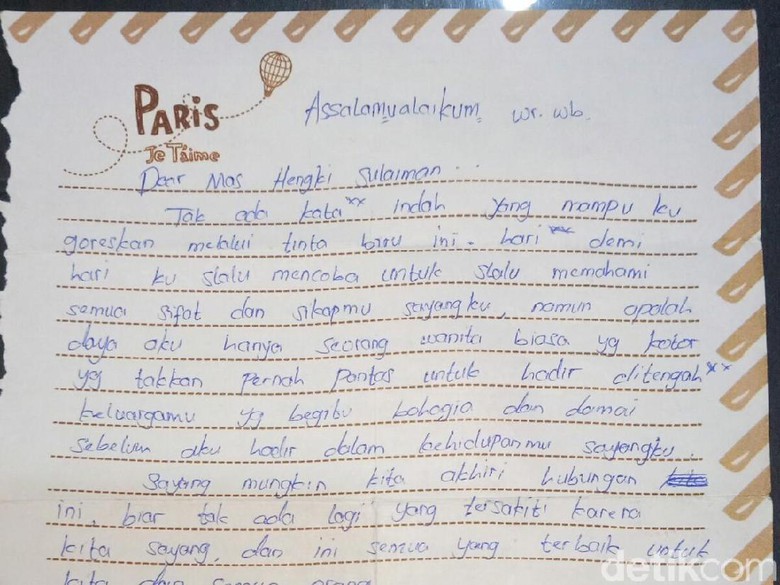 PARIS
Je T'aime
Assalamualaikum wr. wb.
Dear Mas Hengki Sulaiman..
Tak ada kata" indah yang mampu ku
goreskan melalui tinta biru ini. hari demi
hari ku slalu mencoba untuk slalu memahami
semua sifat dan sikapmu sayangku, namun apalah
daya aku hanya seorang wanita biasa yg kotor
yg takkan pernah pantas untuk hadir ditengah"
keluargamu yg begitu bahagia dan damai
sebelum aku hadir dalam kehidupanmu sayangku.
Sayang mungkin kita akhiri hubungan
ini, biar tak ada lagi yang tersakiti karena
kita sayang, dan ini semua yang terbaik untuk
kita dan semua orang
detikcom